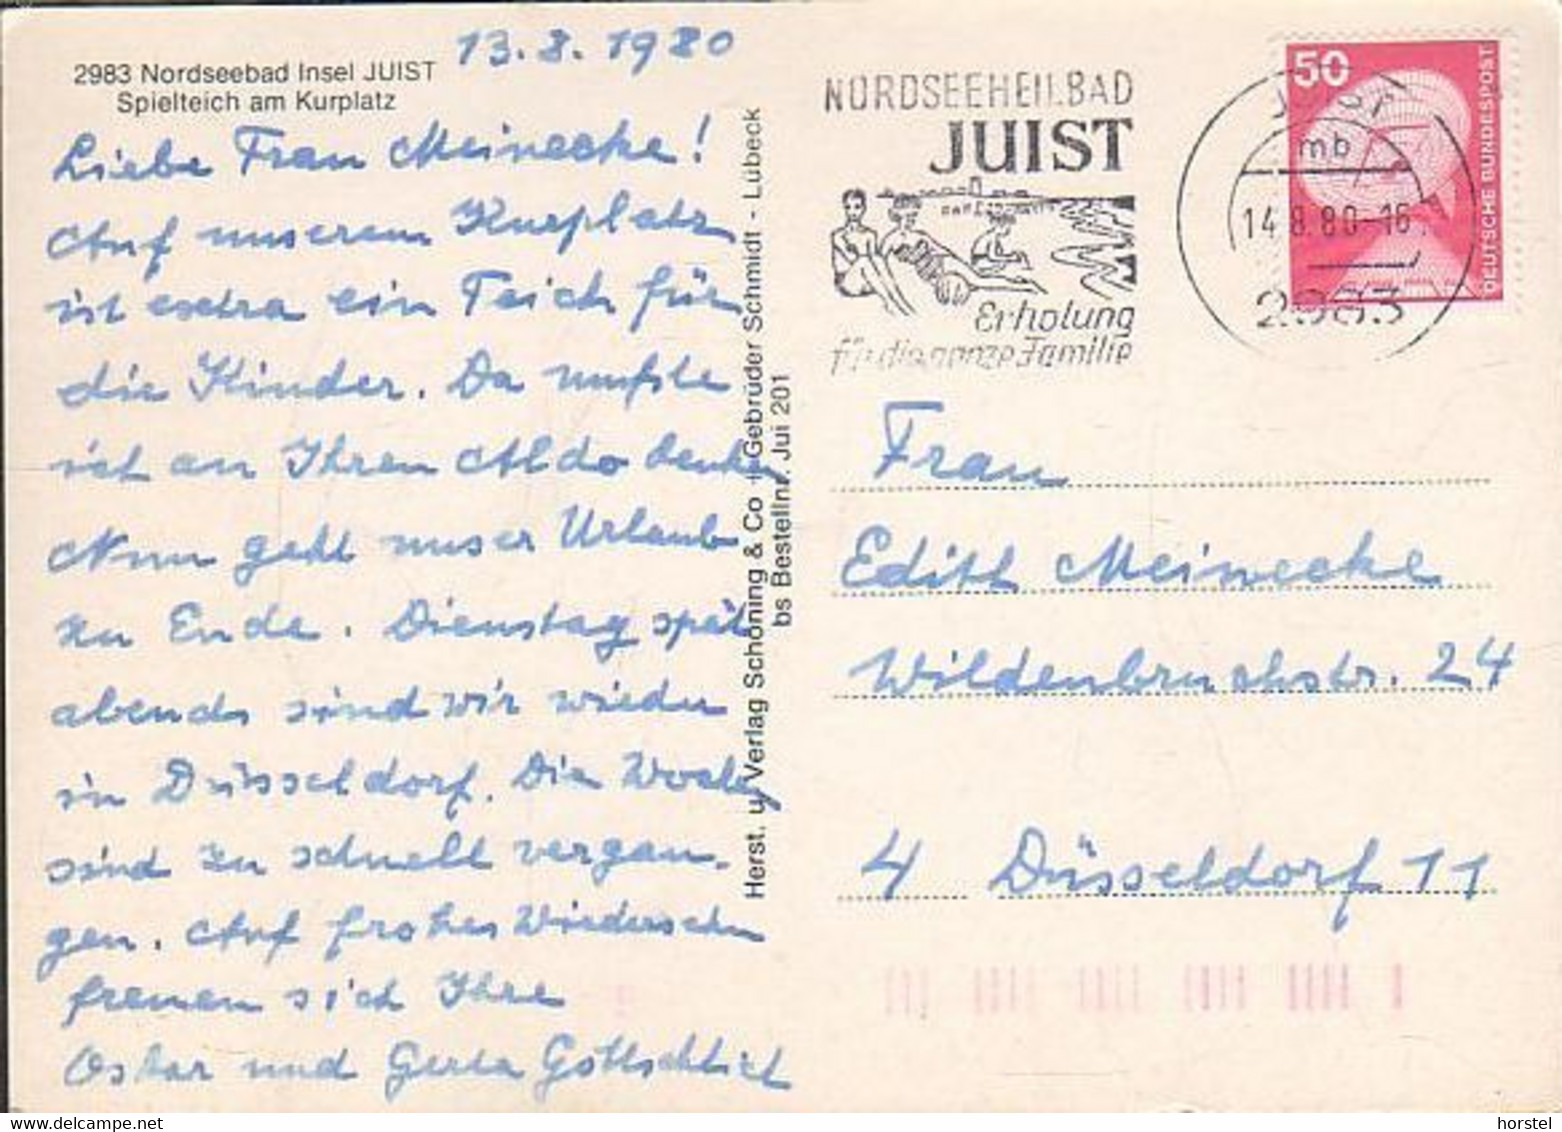 13.8.1980
2983 Nordseebad Insel JUIST
Spielteich am Kurplatz
Liebe Frau Meinecke!
Auf unserem Kurplatz
ist extra ein Teich für
die Kinder. Da mußte
ich an Ihren Aldo denken
Nun geht unser Urlaub
zu Ende. Dienstag spät
abends sind wir wieder
in Düsseldorf. Die Wochen
sind zu schnell vergan-
gen. Auf frohes Wiedersehn
freuen sich Ihre
Oskar und Gerta Gottschlich
Herst. u. Verlag Schöning & Co + Gebrüder Schmidt - Lübeck
bs Bestellnr. Jui 201
NORDSEEHEILBAD
JUIST
Erholung
für die ganze Familie
JUIST
mb
14.8.80-16
2983
50
DEUTSCHE BUNDESPOST
Frau
Edith Meinecke
Wildenbruchstr. 24
4 Düsseldorf 11
delcampe.net
horstel